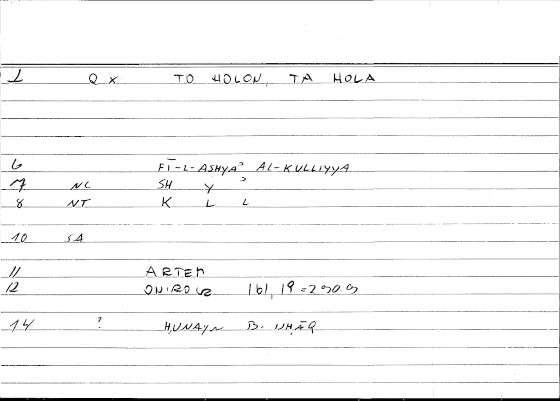 1 Q x TO HOLON, TA HOLA
6 FĪ-L-ASHYAʾ AL-KULLIYYA
7 NC SH Y ʾ
8 NT K L L
10 SA
11 ARTEM
12 ONIROCR 161,19 = 290.9
14 ? ḤUNAYN B. ISḤĀQ